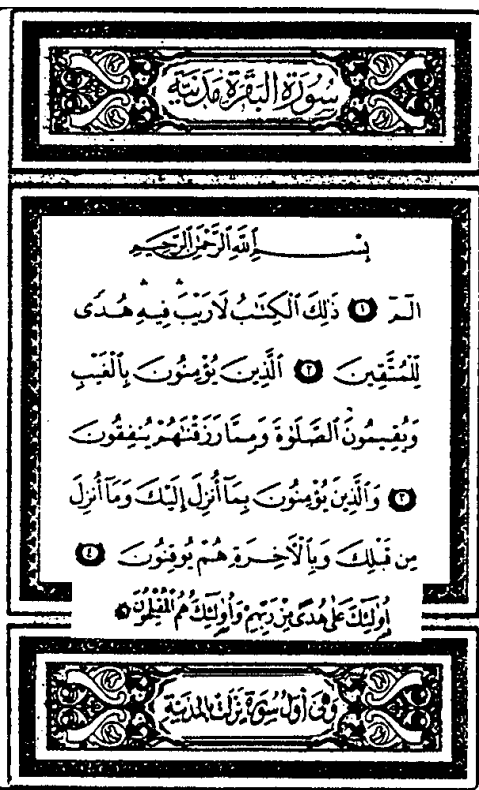 سُورَةُ البَقَرَةِ مَدَنِيَّة
بِسْمِ اللَّهِ الرَّحْمَٰنِ الرَّحِيمِ
الٓمٓ ۝١ ذَٰلِكَ ٱلْكِتَٰبُ لَا رَيْبَ ۛ فِيهِ ۛ هُدًى
لِّلْمُتَّقِينَ ۝٢ ٱلَّذِينَ يُؤْمِنُونَ بِٱلْغَيْبِ
وَيُقِيمُونَ ٱلصَّلَوٰةَ وَمِمَّا رَزَقْنَٰهُمْ يُنفِقُونَ
۝٣ وَٱلَّذِينَ يُؤْمِنُونَ بِمَآ أُنزِلَ إِلَيْكَ وَمَآ أُنزِلَ
مِن قَبْلِكَ وَبِٱلْءَاخِرَةِ هُمْ يُوقِنُونَ ۝٤
أُولَٰئِكَ عَلَىٰ هُدًى مِّن رَّبِّهِمْ وَأُولَٰئِكَ هُمُ الْمُفْلِحُونَ ۝٥
وَهِيَ أَوَّلُ سُورَةٍ نَزَلَتْ بِالمَدِينَةِ